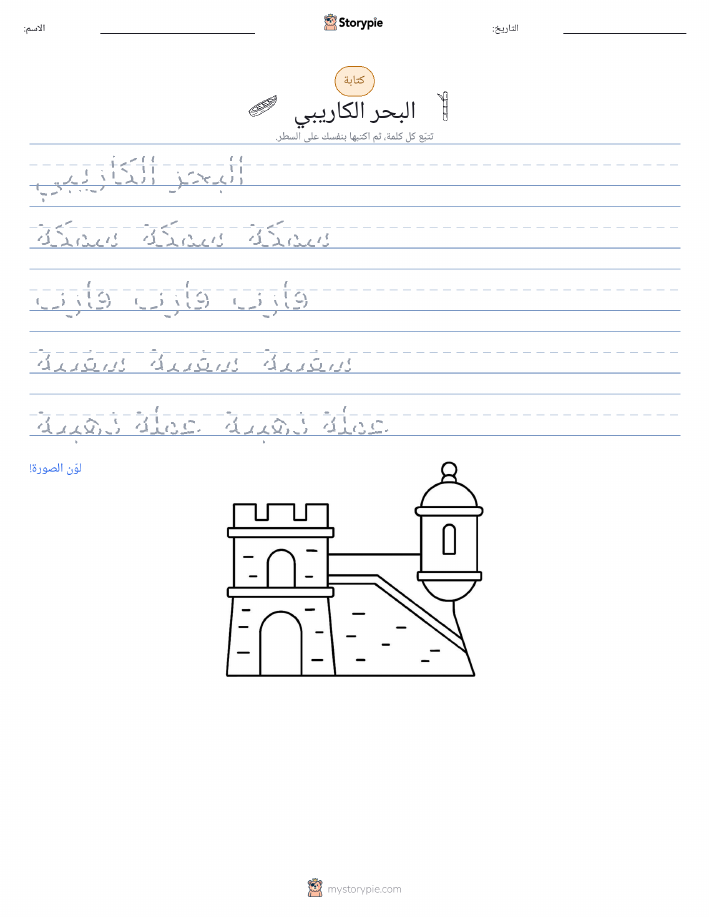 Storypie
الاسم:
التاريخ:
كتابة
البحر الكاريبي
تتبّع كل كلمة، ثم اكتبها بنفسك على السطر.
البحر الكاريبي
سمكة سمكة سمكة
قارب قارب قارب
سفينة سفينة سفينة
عملة ذهبية عملة ذهبية
لوّن الصورة!
mystorypie.com